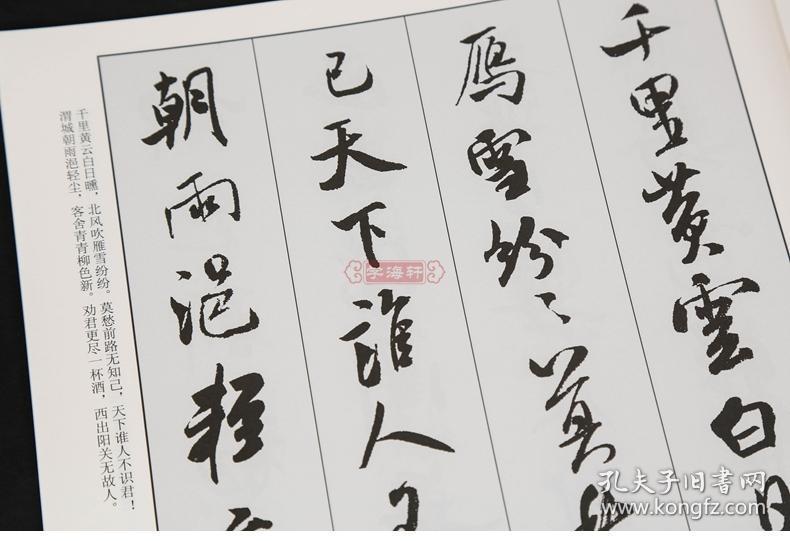 千里黄雲白日
雁雪纷〻莫
已天下誰人不
朝雨浥輕
千里黄云白日曛，北风吹雁雪纷纷。莫愁前路无知己，天下谁人不识君！
渭城朝雨浥轻尘，客舍青青柳色新。劝君更尽一杯酒，西出阳关无故人。
学海轩
孔夫子旧书网
www.kongfz.com